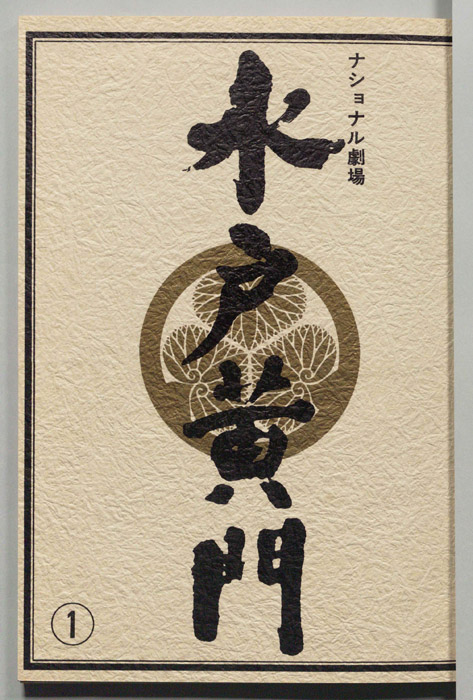 ナショナル劇場
水戸黄門
1